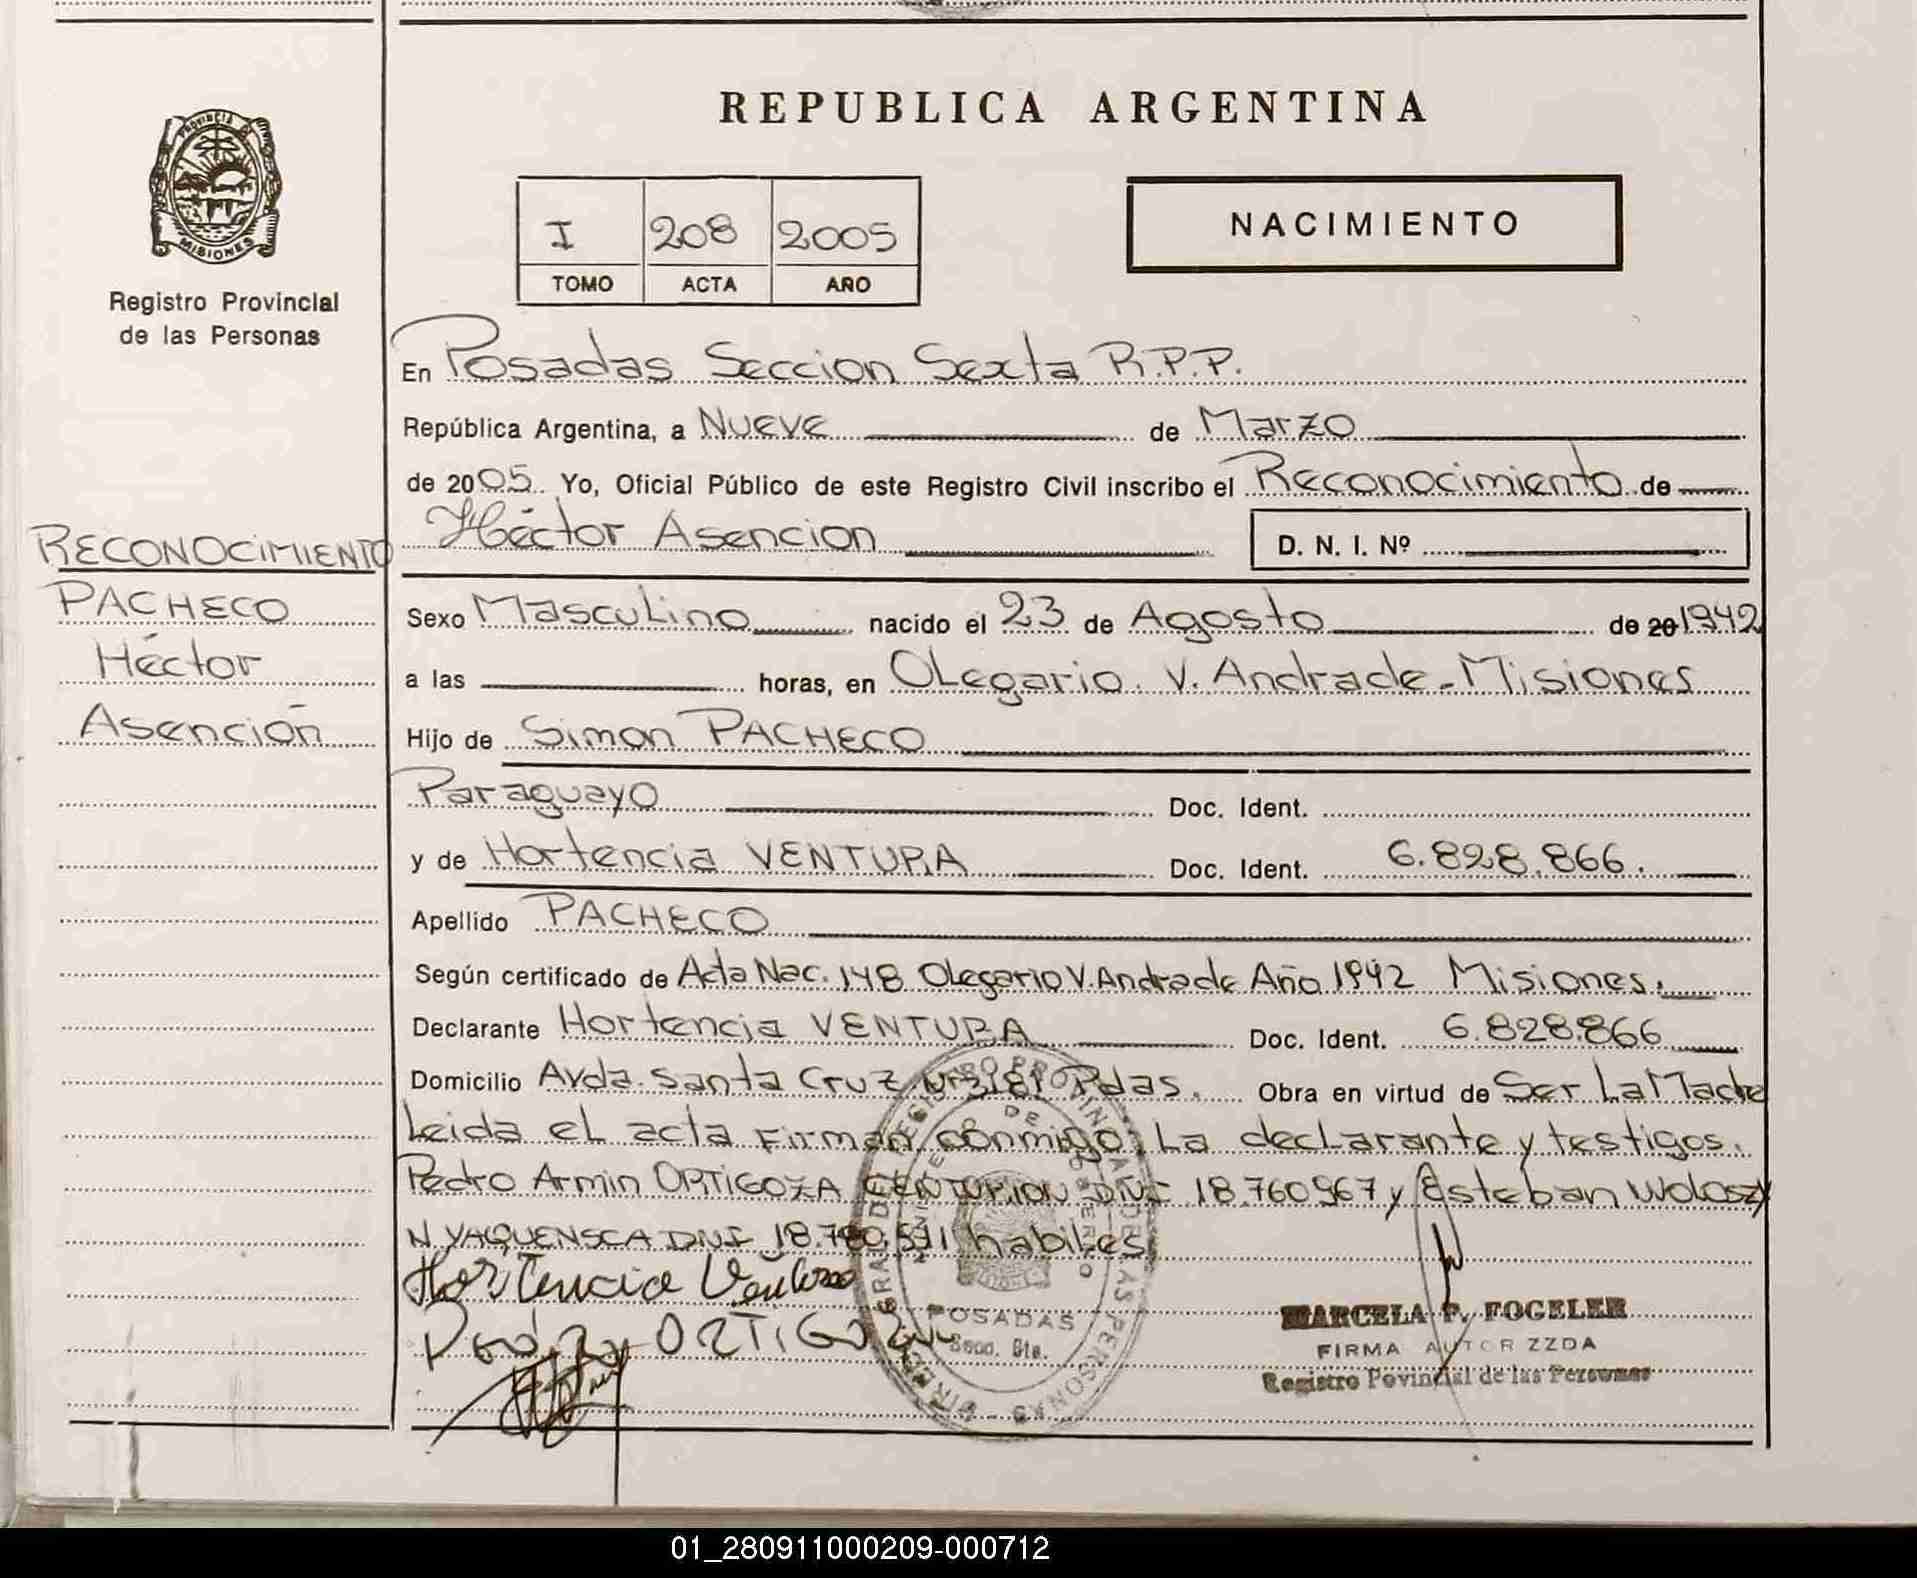 PROVINCIA D
MISIONES
Registro Provincial
de las Personas
RECONOCIMIENTO
PACHECO
Héctor
Asención
REPUBLICA ARGENTINA
I 208 2005
TOMO ACTA AÑO
NACIMIENTO
En Posadas Seccion Sexta R.P.P.
República Argentina, a Nueve de Marzo
de 2005. Yo, Oficial Público de este Registro Civil inscribo el Reconocimiento de
Héctor Asencion D. N. I. Nº
Sexo Masculino nacido el 23 de Agosto de 20 1942
a las horas, en Olegario. V. Andrade - Misiones
Hijo de Simon PACHECO
Paraguayo Doc. Ident.
y de Hortencia VENTURA Doc. Ident. 6.828.866.
Apellido PACHECO
Según certificado de Acta Nac. 148 Olegario V. Andrade Año 1942 Misiones.
Declarante Hortencia VENTURA Doc. Ident. 6.828.866
Domicilio Avda. Santa Cruz Nº 3181 Pdas. Obra en virtud de Ser La Madre
Leida el acta firman conmigo, La declarante y testigos.
Pedro Armin ORTIGOZA CENTURION DNI 18.760967 y Esteban WOLOSZY
N YAQUENSCA DNI 18.780.571 habiles
Hortencia Ventura
ORTIGOZA
POSADAS
Secc. 6ta.
MARCELA F. FOGELER
FIRMA AUTORIZZDA
Registro Povincial de las Personas
01_280911000209-000712